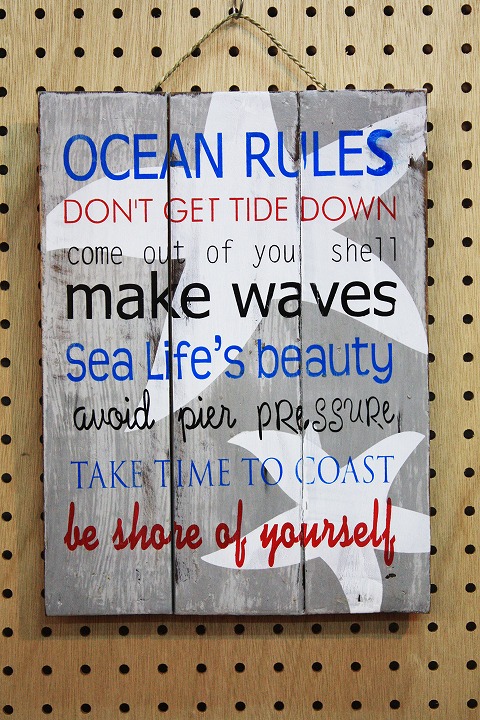 OCEAN RULES
DON'T GET TIDE DOWN
come out of your shell
make waves
Sea Life's beauty
avoid pier pRESSURe
TAKE TIME TO COAST
be shore of yourself